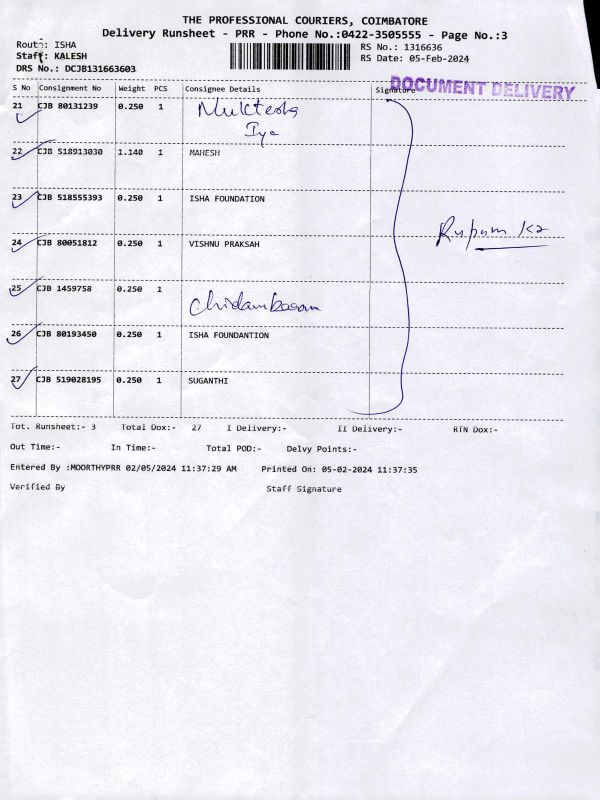 THE PROFESSIONAL COURIERS, COIMBATORE
Delivery Runsheet - PRR - Phone No.:0422-3505555 - Page No.:3
Route: ISHA
RS No.: 1316636
Staff: KALESH
RS Date: 05-Feb-2024
DRS No.: DCJB131663603
DOCUMENT DELIVERY
S No Consignment No Weight PCS Consignee Details Signature
21 CJB 80131239 0.250 1
22 CJB 518913030 1.140 1 MAHESH
23 CJB 518555393 0.250 1 ISHA FOUNDATION
24 CJB 80051812 0.250 1 VISHNU PRAKSAH
25 CJB 1459758 0.250 1
26 CJB 80193450 0.250 1 ISHA FOUNDANTION
27 CJB 519028195 0.250 1 SUGANTHI
Tot. Runsheet:- 3 Total Dox:- 27 I Delivery:- II Delivery:- RTN Dox:-
Out Time:- In Time:- Total POD:- Delvy Points:-
Entered By :MOORTHYPRR 02/05/2024 11:37:29 AM Printed On: 05-02-2024 11:37:35
Verified By Staff Signature